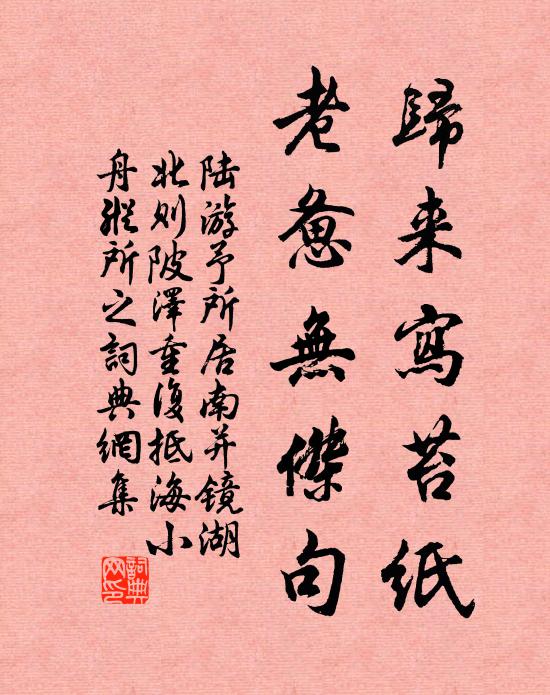 歸来寫苔紙
老憊無傑句
陆游予所居南并镜湖
北则陂澤重復抵海小
舟縱所之詞典網集
詞典网印